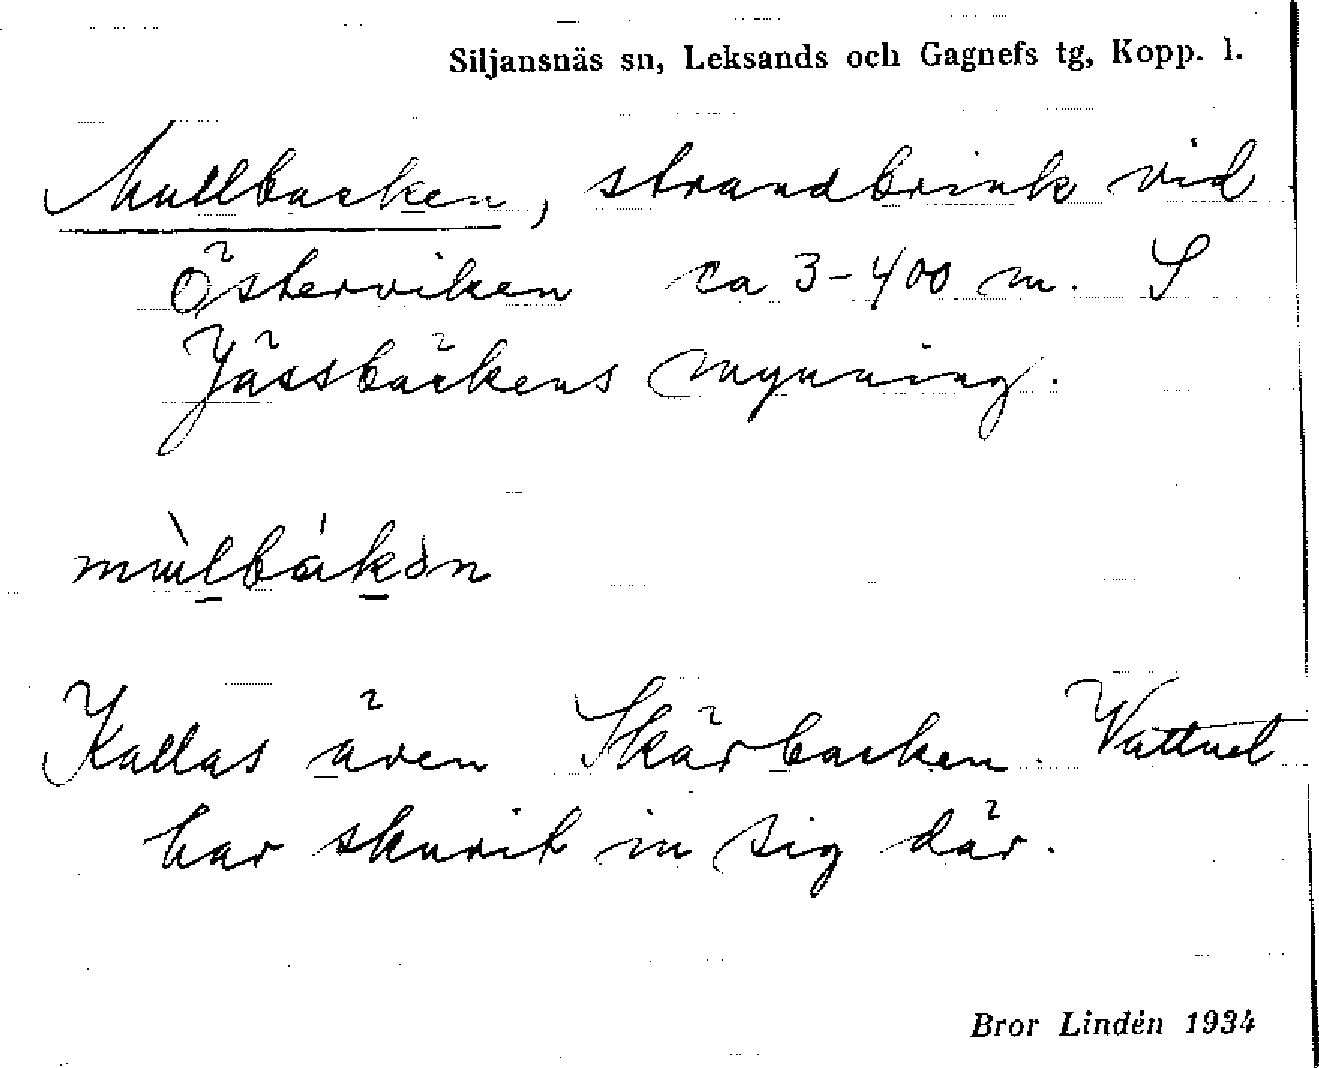 Siljansnäs sn, Leksands och Gagnefs tg, Kopp. l.
Mullbacken, strandbrink vid
Österviken ca 3-400 m. S
Jässbäckens mynning.
mùlbákən
Kallas även Skärbacken. Vattnet
har skurit in sig där.
Bror Lindén 1934